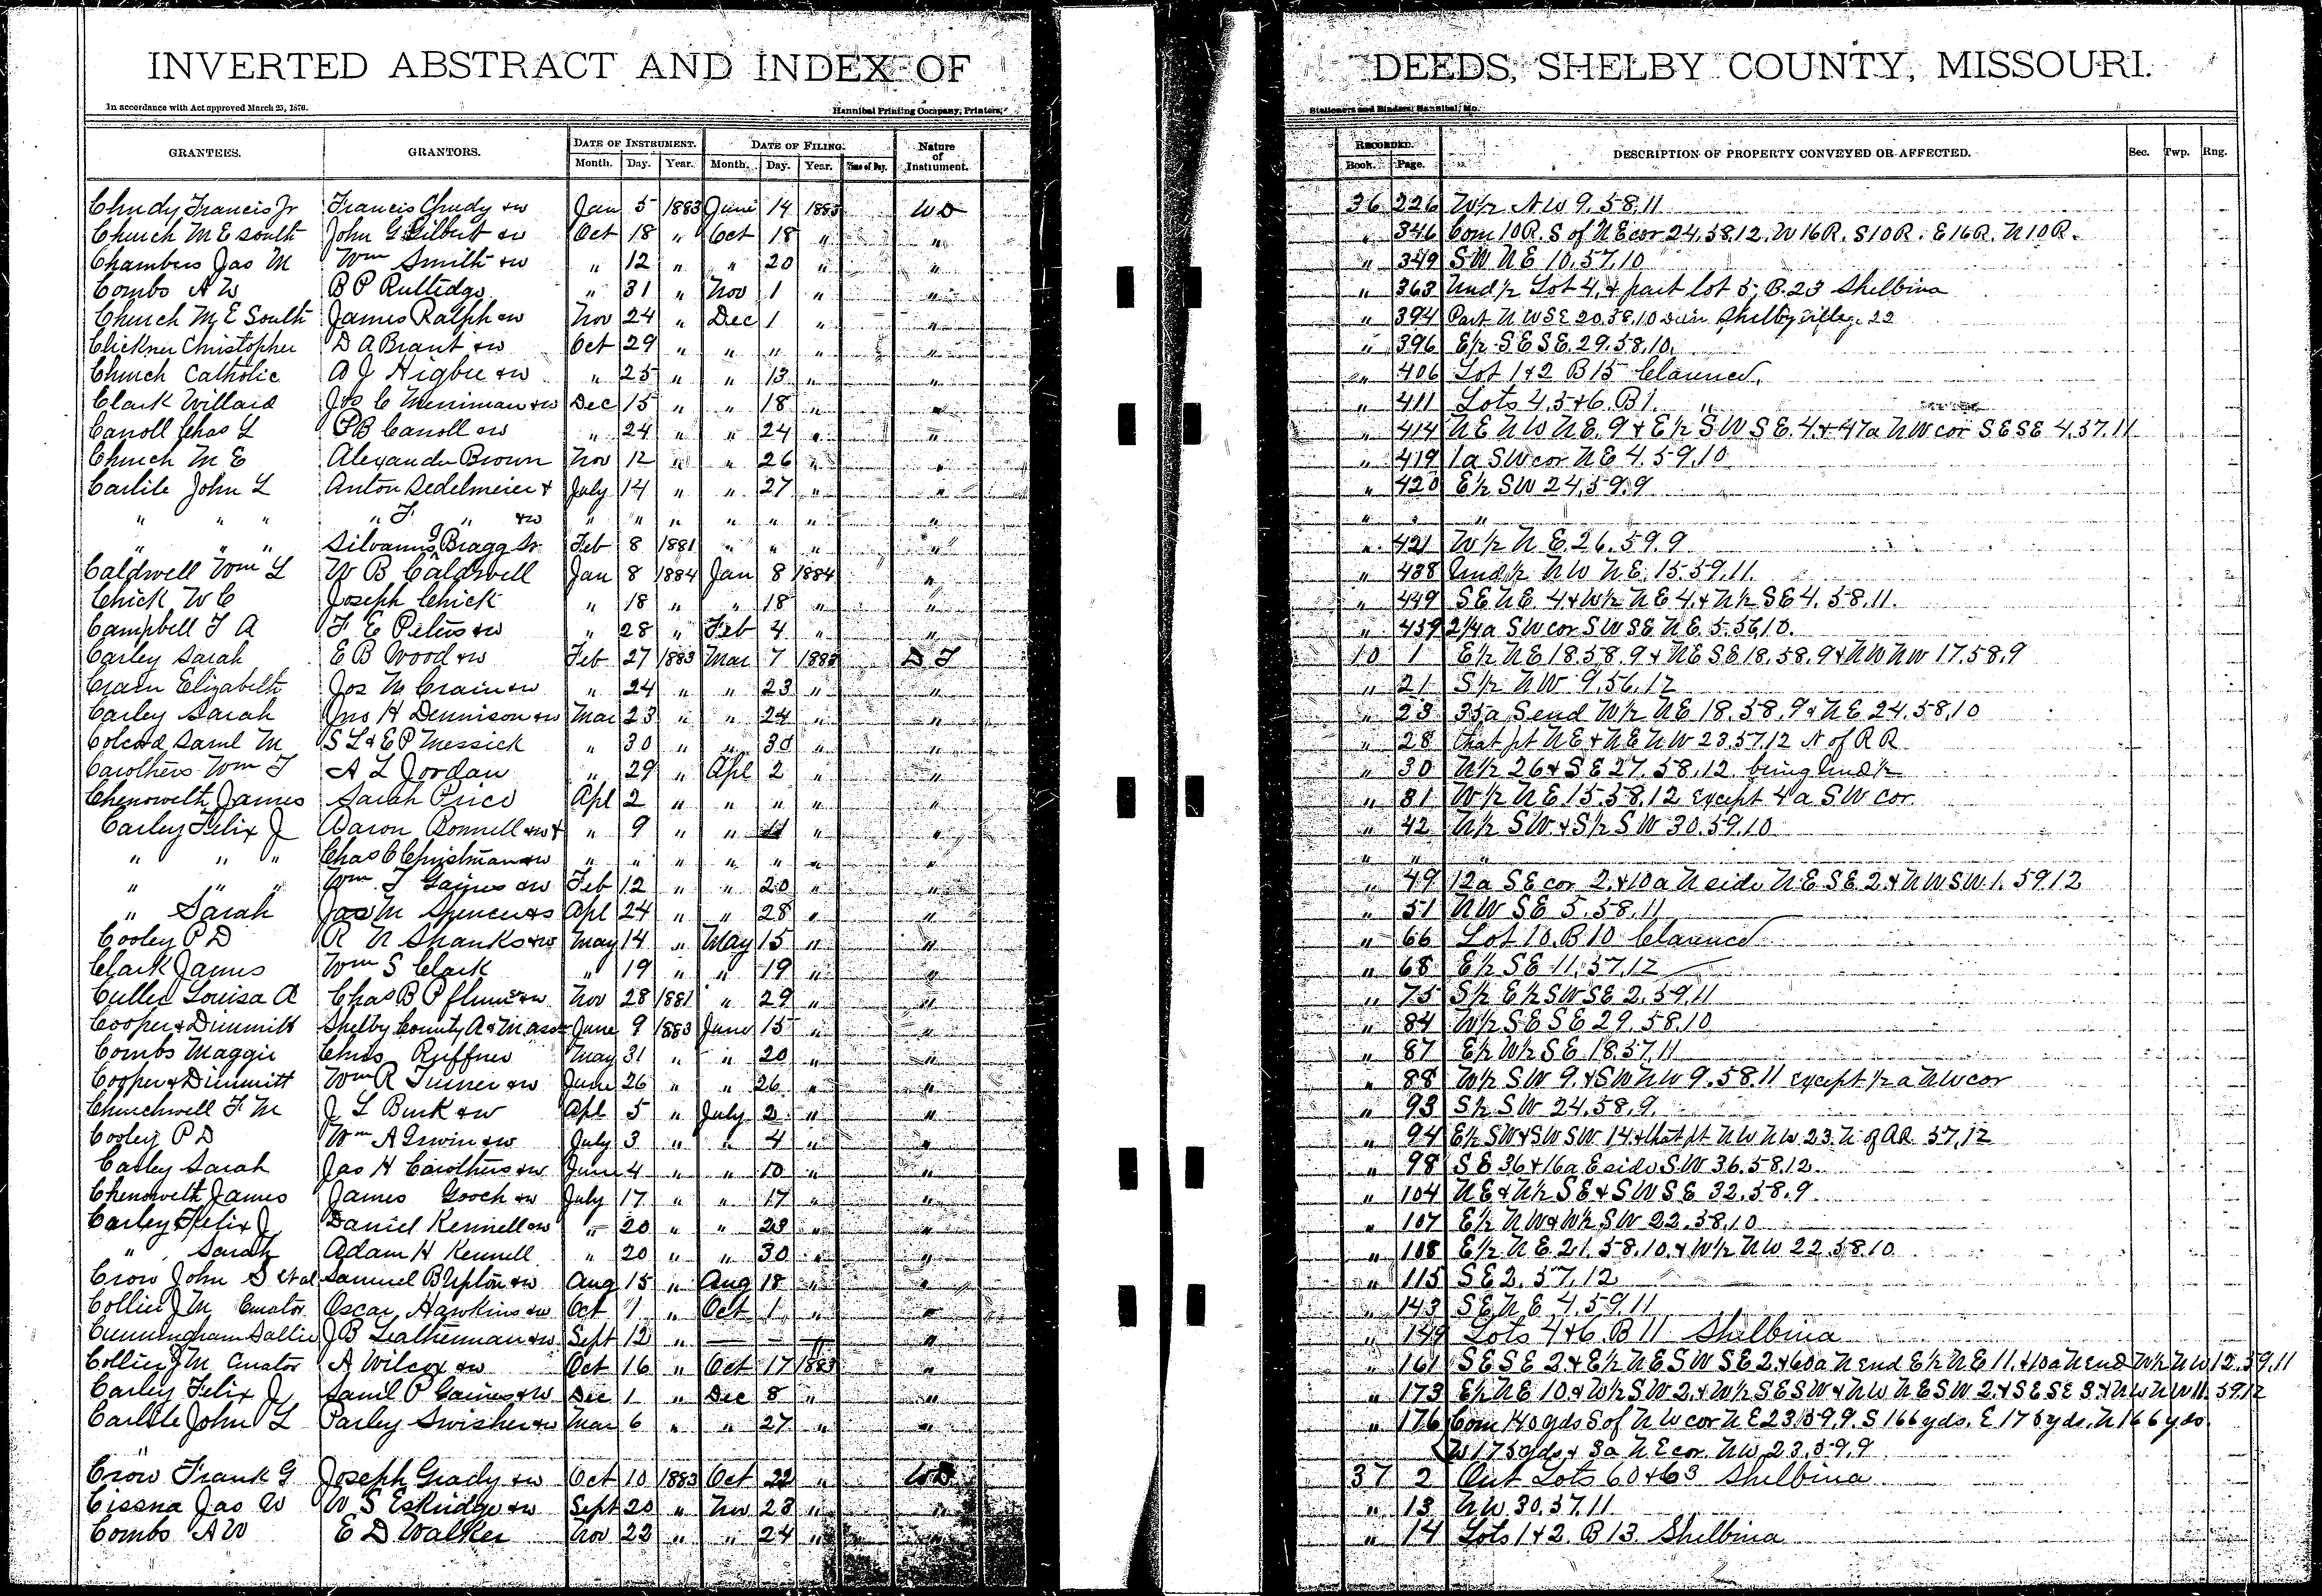 INVERTED ABSTRACT AND INDEX OF DEEDS, SHELBY COUNTY, MISSOURI.
In accordance with Act approved March 25, 1870. Hannibal Printing Company, Printers, Stationers and Binders, Hannibal, Mo.
GRANTEES. GRANTORS. DATE OF INSTRUMENT. DATE OF FILING. Nature of Instrument. RECORDED. DESCRIPTION OF PROPERTY CONVEYED OR AFFECTED. Sec. Twp. Rng.
Month. Day. Year. Month. Day. Year. Time of Day. Book. Page.
Chudy Francis Jr Francis Chudy &w Jan 5 1883 June 14 1883 WD 36 226 W½ NW 9.58.11
Church M E South John G Gilbert &w Oct 18 " Oct 18 " " " 346 Com 10R. S of NE cor 24.58.12, W 16R. S10R. E16R. N10R.
Chambers Jas M Wm Smith &w " 12 " " 20 " " " 349 SW NE 10.57.10
Combs A W B P Rutledge " 31 " Nov 1 " " " 363 Und½ Lot 4, & part lot 5, B.23 Shelbina
Church M E South James Ralph &w Nov 24 " Dec 1 " " " 394 Part NW SE 20.58.10 Shelbyville 22
Clickner Christopher D A Brant &w Oct 29 " " " " " " 396 E½ SE SE 29.58.10.
Church Catholic A J Higbee &w " 25 " " 13 " " " 406 Lot 1&2 B15 Clarence
Clark Willard Jos C Merriman &w Dec 15 " " 18 " " " 411 Lots 4.5&6. B1. "
Canoll Chas L P B Canoll &w " 24 " " 24 " " " 414 NE NW NE.9 & E½ SW SE.4 & 47a NW cor SE SE 4.57.11
Church M E Alexander Brown Nov 12 " " 26 " " " 419 1a SW cor NE 4.59.10
Carlile John L Anton Sedelmeier & July 14 " " 27 " " " 420 E½ SW 24.59.9
" " " " F. " &w " " " " " " " " " "
" " " Silvanus Bragg Sr Feb 8 1881 " " " " " 421 W½ NE.26.59.9
Caldwell Wm L W B Caldwell Jan 8 1884 Jan 8 1884 " " 438 Und½ NW NE.15.59.11.
Chick W C Joseph Chick " 18 " " 18 " " " 449 SE NE 4 & W½ NE 4. & N½ SE 4.58.11.
Campbell T A F E Peters &w " 28 " Feb 4 " " " 459 2¼a SW cor SW SE NE 5.56.10.
Carley Sarah E B Wood &w Feb 27 1883 Mar 7 1883 D T 10 1 E½ NE 18.58.9 & NE SE 18.58.9 & NW NW 17.58.9
Crain Elizabeth Jos M Crain &w " 24 " " 23 " " " 21 S½ NW 9.56.12
Carley Sarah Jno H Dennison &w Mar 23 " " 24 " " " 23 35a S end W½ NE 18.58.9 & NE 24.58.10
Colcord Saml M S L & E P Messick " 30 " " 30 " " " 28 that pt NE & NE NW 23.57.12 N of RR
Carothers Wm T A L Jordan " 29 " Apl 2 " " " 30 N½ 26 & SE 27.58.12. being Und½
Chenoweth James Sarah Price Apl 2 " " " " " " 31 W½ NE 15.58.12 except 4a SW cor.
Carley Felix J Aaron Bonnell &w & " 9 " " 11 " " " 42 N½ SW & S½ SW 30.59.10
" " " Chas C Christman &w " " " " " " " " " "
" " " Wm T Gaines &w Feb 12 " " 20 " " " 49 12a SE cor 2. & 10a N side NE SE 2 & NW SW 1.59.12
" Sarah Jas M Spencer &s Apl 24 " " 28 " " " 51 NW SE 5.58.11
Cooley P D R N Shanks &w May 14 " May 15 " " " 66 Lot 10. B10 Clarence
Clark James Wm S Clark " 19 " " 19 " " " 68 E½ SE 11.57.12
Culler Louisa A Chas B &w Nov 28 1881 " 29 " " " 75 S½ E½ SW SE 2.59.11
Cooper & Dimmitt Shelby County A & M ass June 9 1883 June 15 " " " 84 W½ SE SE 29.58.10
Combs Maggie Chris Ruffner May 31 " " 20 " " " 87 E½ W½ SE 18.57.11
Cooper & Dimmitt Wm R Turner &w June 26 " " 26 " " " 88 W½ SW 9. & SW NW 9.58.11 except ½a NW cor
Churchwell F M J L Burk &w Apl 5 " July 2 " " " 93 S½ SW 24.58.9.
Cooley P D Wm A Irwin &w July 3 " " 4 " " " 94 E½ SW & SW SW 14 & that pt NW NW 23.N of RR 57.12
Carley Sarah Jas H Carothers &w June 4 " " 10 " " " 98 SE 36 & 16a E side SW 36.58.12
Chenoweth James James Gooch &w July 17 " " 17 " " " 104 NE & N½ SE & SW SE 32.58.9
Carley Felix J Daniel Kennell &w " 20 " " 23 " " " 107 E½ NW & W½ SW 22.58.10
" Sarah Adam H Kennell " 20 " " 30 " " " 108 E½ NE 21.58.10. & W½ NW 22.58.10
Crow John S et al Samuel B Upton &w Aug 15 " Aug 18 " " " 115 SE 2.57.12
Collier J M Curator Oscar Hawkins &w Oct 1 " Oct 1 " " " 143 SE NE 4.59.11
Cunningham Sallie J B Leatherman &w Sept 12 " — — " " " 149 Lots 4&6 B11 Shelbina
Collier J M Curator A Wilcox &w Oct 16 " Oct 17 1883 " " 161 SE SE 2. & E½ NE SW SE 2. & 60a N end E½ NE 11. & 10a N end W½ NW 12.59.11
Carley Felix J Saml P Gaines &w Dec 1 " Dec 8 " " " 173 E½ NE 10. & W½ SW 2. & W½ SE SW & NW NE SW 2. & SE SE 3. & NW NW 11.59.12
Carlile John L Parley Swisher &w Mar 6 " " 27 " " " 176 Com 140 yds S of NW cor NE 23.59.9. S 166 yds. E 175 yds. N 166 yds.
" W 175 yds & 3a NE cor. NW 23.59.9
Crow Frank G Joseph Grady &w Oct 10 1883 Oct 22 " WD 37 2 Out Lots 60 & 63 Shelbina
Cissna Jas W W S Eskridge &w Sept 20 " Nov 23 " " " 13 NW 30.57.11
Combs A W E D Walker Nov 22 " " 24 " " " 14 Lots 1&2. B13. Shelbina